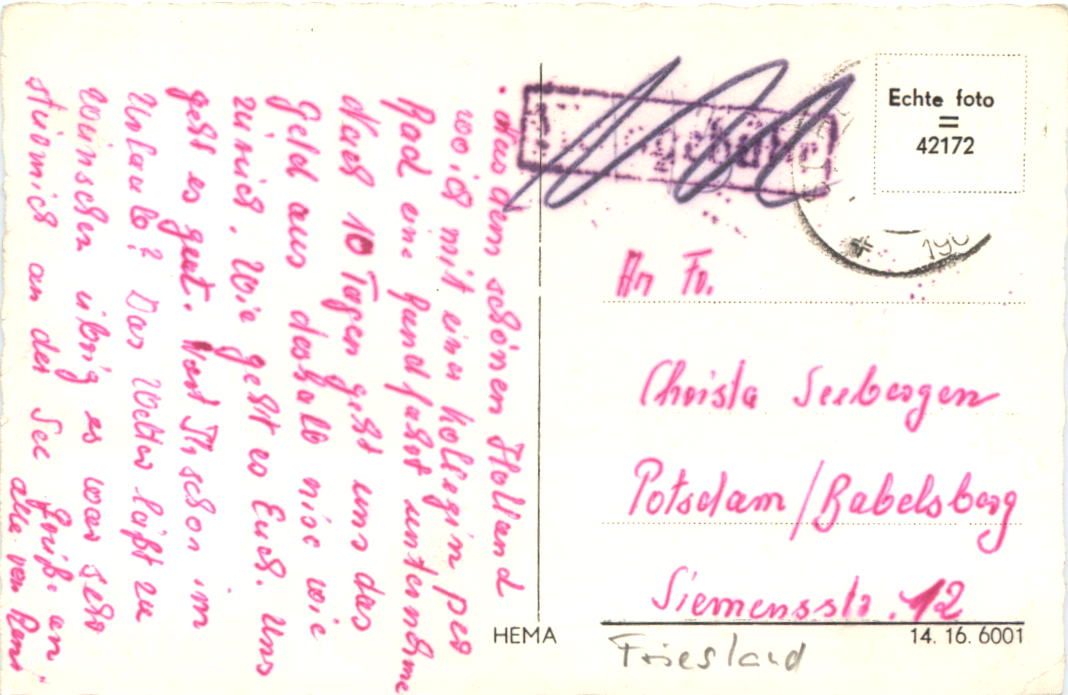 Aus dem schönen Holland
wo ich mit einer Kollegin per
Rad eine Rundfahrt unternehme
Nach 10 Tagen geht uns das
Geld aus deshalb nix wie
zurück. Wie geht es Euch. Uns
geht es gut. Wart Ihr schon im
Urlaub? Das Wetter läßt zu
wünschen übrig es war sehr
stürmisch an der See Grüße an
alle von Reni
Echte foto
=
42172
190
An Fr.
Christa Seebergen
Potsdam/Babelsberg
Siemensstr. 12
HEMA
14. 16. 6001
Friesland